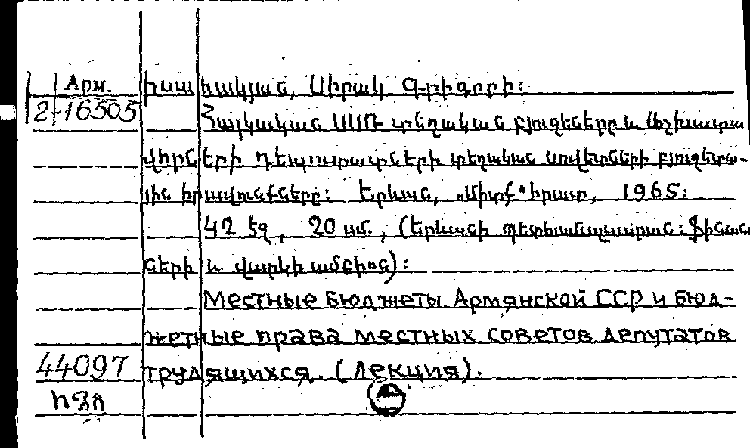 Арм. Իսահակյան, Սիրակ Գրիգորի:
2-16505 Հայկական ՍՍՌ տեղական բյուջեները և աշխատա
վորների դեպուտատների տեղական սովետների բյուջետա-
յին իրավունքները: Երևան, „Միտք“ հրատ, 1965:
42 էջ, 20 սմ., (Երևանի պետհամալսարան: Ֆինանս
ների և վարկի ամբիոն):
Местные бюджеты Армянской ССР и бюд-
жетные права местных советов депутатов
44097 трудящихся. (лекция).